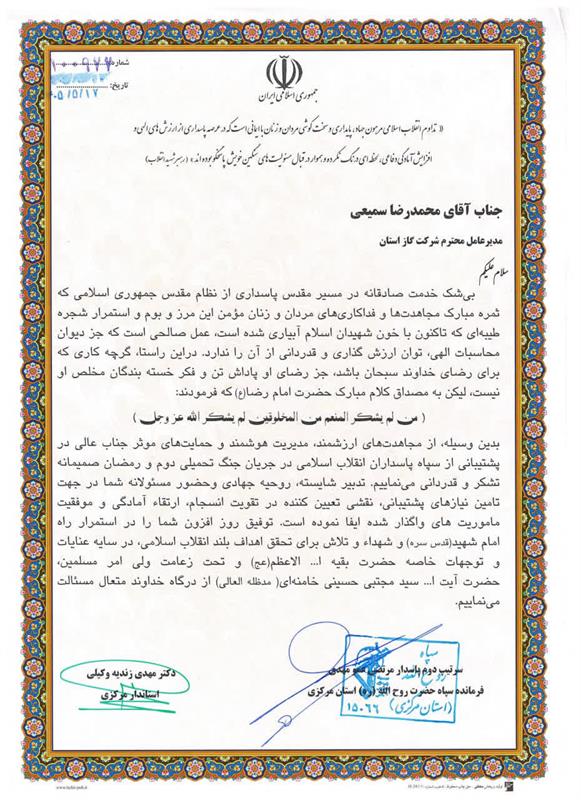 شماره: ۱۰۰۹۲۲
تاریخ: ۰۵/۵/۱۷
جمهوری اسلامی ایران
« تداوم انقلاب اسلامی مرهون جهاد، پایداری و سخت کوشی مردان و زنان با ایمانی است که در عرصه پاسداری از ارزش های الهی و
افزایش آمادگی دفاعی، لحظه ای درنگ نکرده و همواره در قبال مسئولیت های سنگین خویش پاسخگو بوده اند » (رهبر شهید انقلاب)
جناب آقای محمدرضا سمیعی
مدیرعامل محترم شرکت گاز استان
سلام علیکم
بی‌شک خدمت صادقانه در مسیر مقدس پاسداری از نظام مقدس جمهوری اسلامی که
ثمره مبارک مجاهدت‌ها و فداکاری‌های مردان و زنان مؤمن این مرز و بوم و استمرار شجره
طیبه‌ای که تاکنون با خون شهیدان اسلام آبیاری شده است، عمل صالحی است که جز دیوان
محاسبات الهی، توان ارزش گذاری و قدردانی از آن را ندارد. دراین راستا، گرچه کاری که
برای رضای خداوند سبحان باشد، جز رضای او پاداش تن و فکر خسته بندگان مخلص او
نیست، لیکن به مصداق کلام مبارک حضرت امام رضا(ع) که فرمودند:
( من لم یشکر المنعم من المخلوقین لم یشکر الله عز وجل )
بدین وسیله، از مجاهدت‌های ارزشمند، مدیریت هوشمند و حمایت‌های موثر جناب عالی در
پشتیبانی از سپاه پاسداران انقلاب اسلامی در جریان جنگ تحمیلی دوم و رمضان صمیمانه
تشکر و قدردانی می‌نماییم. تدبیر شایسته، روحیه جهادی وحضور مسئولانه شما در جهت
تامین نیازهای پشتیبانی، نقشی تعیین کننده در تقویت انسجام، ارتقاء آمادگی و موفقیت
ماموریت های واگذار شده ایفا نموده است. توفیق روز افزون شما را در استمرار راه
امام شهید(قدس سره) و شهداء و تلاش برای تحقق اهداف بلند انقلاب اسلامی، در سایه عنایات
و توجهات خاصه حضرت بقیه ا... الاعظم(عج) و تحت زعامت ولی امر مسلمین،
حضرت آیت ا... سید مجتبی حسینی خامنه‌ای( مدظله العالی) از درگاه خداوند متعال مسئالت
می‌نماییم.
سرتیپ دوم پاسدار مرتضی عمو مهدی
فرمانده سپاه حضرت روح الله (ره) استان مرکزی
سپاه
روح الله
(استان مرکزی)
۱۵۰۶۶
دکتر مهدی زندیه وکیلی
استاندار مرکزی